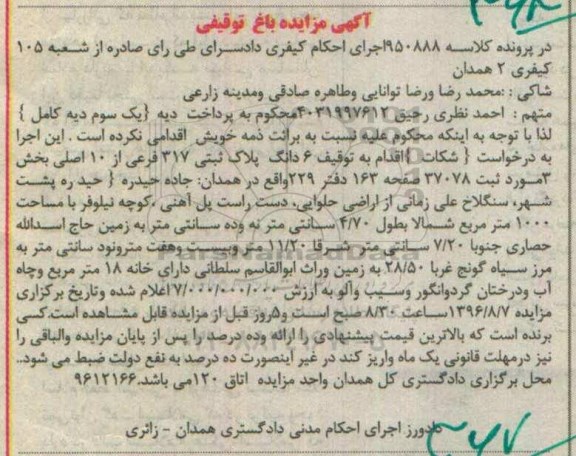 آگهی مزایده باغ توقیفی
در پرونده کلاسه ۹۵۰۸۸۸اجرای احکام کیفری دادسرای طی رای صادره از شعبه ۱۰۵
کیفری ۲ همدان
شاکی : :محمد رضا ورضا توانایی وطاهره صادقی ومدینه زارعی
متهم : احمد نظری رحیق ۴۰۳۱۹۹۷۶۱۲محکوم به پرداخت دیه {یک سوم دیه کامل }
لذا با توجه به اینکه محکوم علیه نسبت به برائت ذمه خویش اقدامی نکرده است . این اجرا
به درخواست { شکات }اقدام به توقیف ۶ دانگ پلاک ثبتی ۳۱۷ فرعی از ۱۰ اصلی بخش
۳مورد ثبت ۳۷۰۷۸ صفحه ۱۶۳ دفتر ۲۲۹واقع در همدان: جاده حیدره { حید ره پشت
شهر، سنگلاخ علی زمانی از اراضی حلوایی، دست راست پل آهنی ،کوچه نیلوفر با مساحت
۱۰۰۰ متر مربع شمالا بطول ۴/۷۰ سانتی متر نه وده سانتی متر به زمین حاج اسدالله
حصاری جنوبا ۷/۲۰ سانتی متر شرقا ۱۱/۲۰ متر وبیست وهفت مترونود سانتی متر به
مرز سیاه گونج غربا ۲۸/۵۰ به زمین وراث ابوالقاسم سلطانی دارای خانه ۱۸ متر مربع وچاه
آب ودرختان گردوانگور وسیب وآلو به ارزش ۷/۰۰۰/۰۰۰/۰۰۰اعلام شده وتاریخ برگزاری
مزایده ۱۳۹۶/۸/۷ساعت ۸/۳۰ صبح است و۵روز قبل از مزایده قابل مشاهده است.کسی
برنده است که بالاترین قیمت پیشنهادی را ارائه وده درصد را پس از پایان مزایده والباقی را
نیز درمهلت قانونی یک ماه واریز کند در غیر اینصورت ده درصد به نفع دولت ضبط می شود..
محل برگزاری دادگستری کل همدان واحد مزایده اتاق ۱۲۰می باشد.۹۶۱۲۱۶۶
دادورز اجرای احکام مدنی دادگستری همدان - زائری